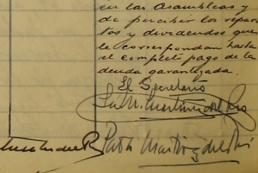 en las Asambleas y
de percibir los repar-
tos y dividendos que
le correspondan hasta
el completo pago de la
deuda garantizada.
El Secretario
Martinez del Rio
Pablo Martinez del Rio